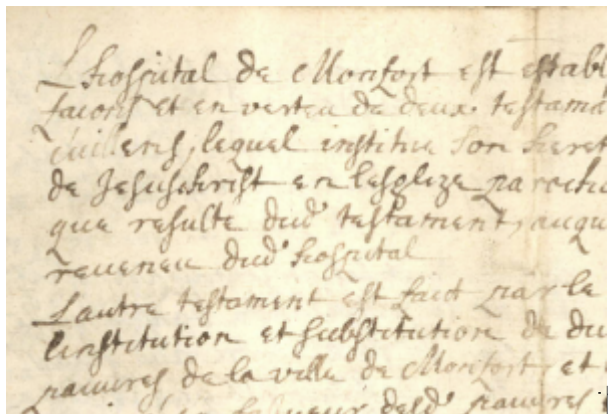 L hospital de Monfort est establ
facons et en verteu de deux testama
lequel institue son heret
de Jesuschrist en lesglize parochi
que resulte dud testament, auqu
reveneu dud hospital
Lautre testament est faict par le
linstitution et substitution de du
pauvres de la ville de Monfort, et
desd pauvres